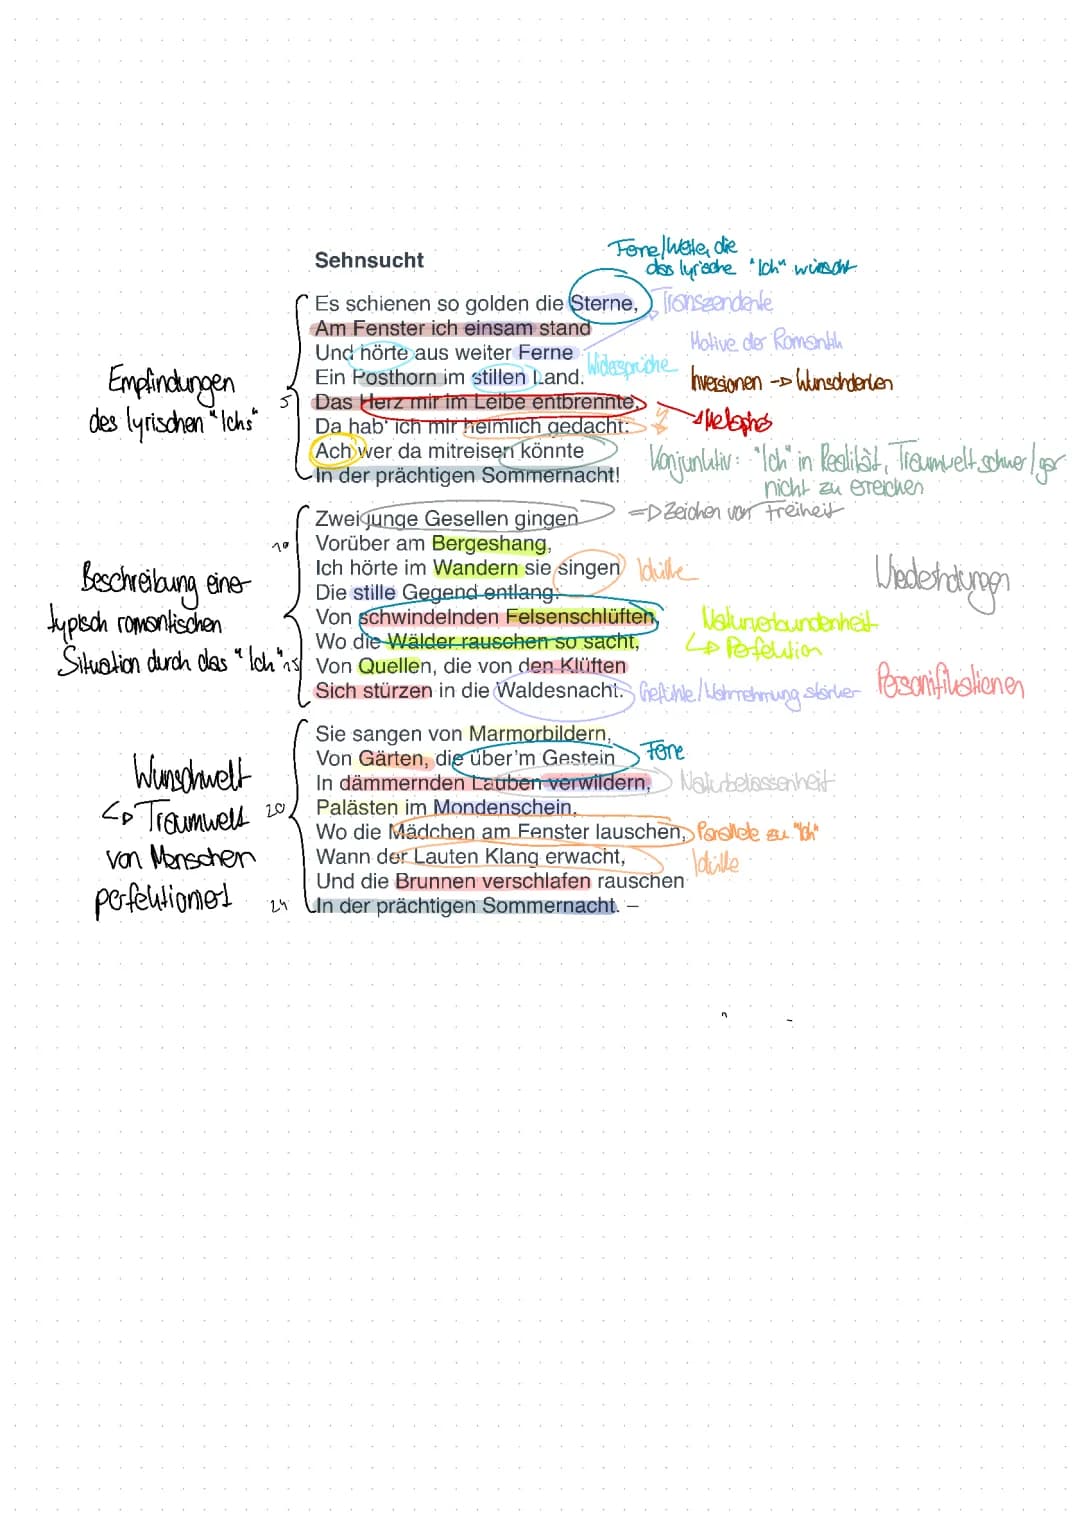 Ferne/Weite, die
das lyrische "Ich" wünscht
Sehnsucht
Es schienen so golden die Sterne,
Transzendente
Am Fenster ich einsam stand
Motive der Romantik
Und hörte aus weiter Ferne
Widersprüche
Ein Posthorn im stillen Land.
Inversionen -> Wunschdenken
Empfindungen
des lyrischen "Ichs"
5
Das Herz mir im Leibe entbrennte,
Metapher
Da hab' ich mir heimlich gedacht:
Ach wer da mitreisen könnte
Konjunktiv: "Ich" in Realität, Traumwelt schwer/gar
nicht zu erreichen
In der prächtigen Sommernacht!
Zwei junge Gesellen gingen
=> Zeichen von Freiheit
10
Vorüber am Bergeshang,
Ich hörte im Wandern sie singen
Idylle
Wiederholungen
Beschreibung einer
typisch romantischen
Situation durch das "Ich"
Die stille Gegend entlang:
Von schwindelnden Felsenschlüften,
Naturverbundenheit
-> Perfektion
Wo die Wälder rauschen so sacht,
15
Von Quellen, die von den Klüften
Personifikationen
Sich stürzen in die Waldesnacht.
Gefühle/Wahrnehmung stärker
Sie sangen von Marmorbildern,
Von Gärten, die über'm Gestein
Ferne
In dämmernden Lauben verwildern,
Naturbelassenheit
Wunschwelt
-> Traumwelt
von Menschen
perfektioniert
20
Palästen im Mondenschein,
Wo die Mädchen am Fenster lauschen,
Parallele zu "Ich"
Wann der Lauten Klang erwacht,
Idylle
Und die Brunnen verschlafen rauschen
24
In der prächtigen Sommernacht. –